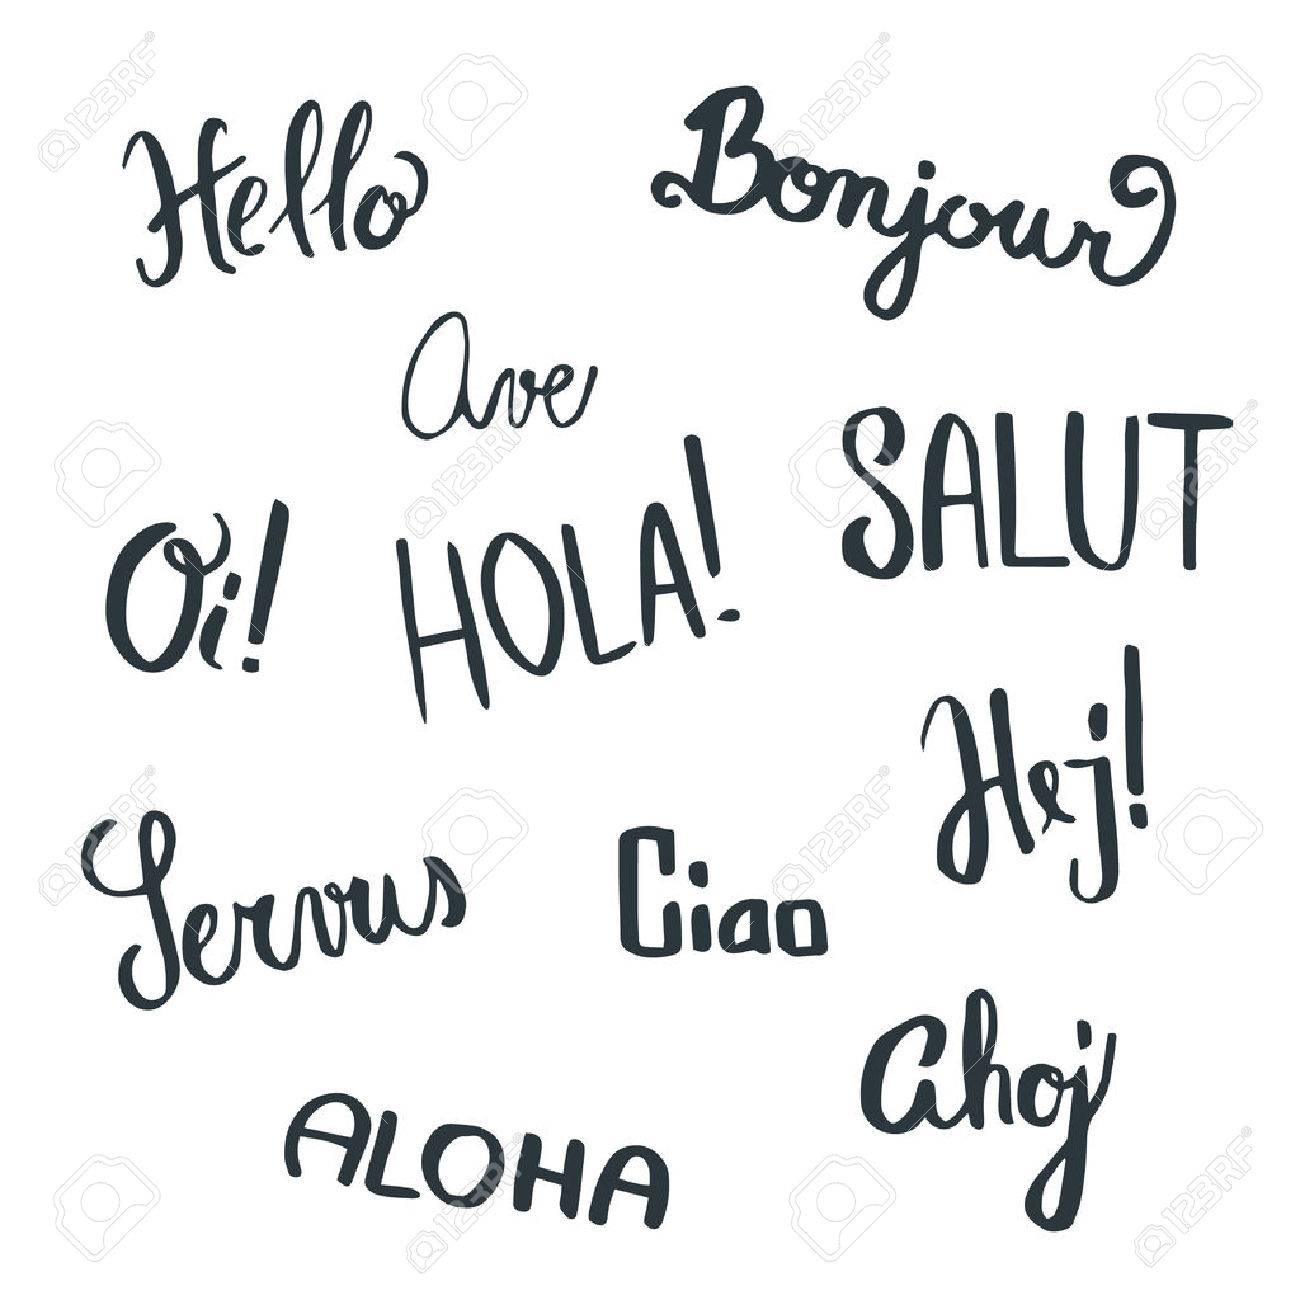 Hello
Bonjour
Ave
SALUT
Oi!
HOLA!
Hej!
Servus
Ciao
Ahoj
ALOHA
123RF